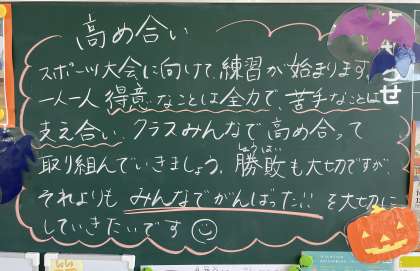 高め合い
スポーツ大会に向けて、練習が始まります。
一人一人得意なことは全力で、苦手なことは
支え合い、クラスみんなで高め合って
取り組んでいきましょう。勝敗も大切ですが、
しょうはい
それよりも みんなでがんばった!! を大切に
していきたいです